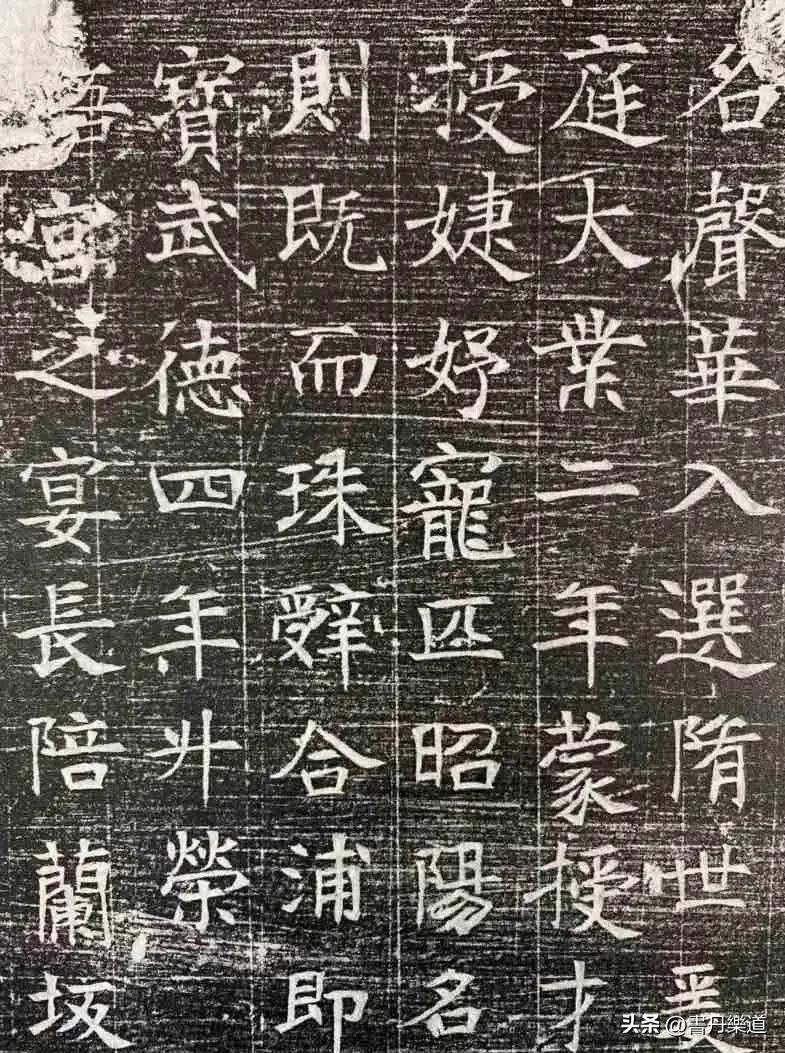 聲華入選隋世爰
庭大業二年蒙授才
授婕妤寵匹昭陽名
則既而珠辭合浦即
寶武德四年升榮
宮之宴長陪蘭坂
头条 @書丹樂道